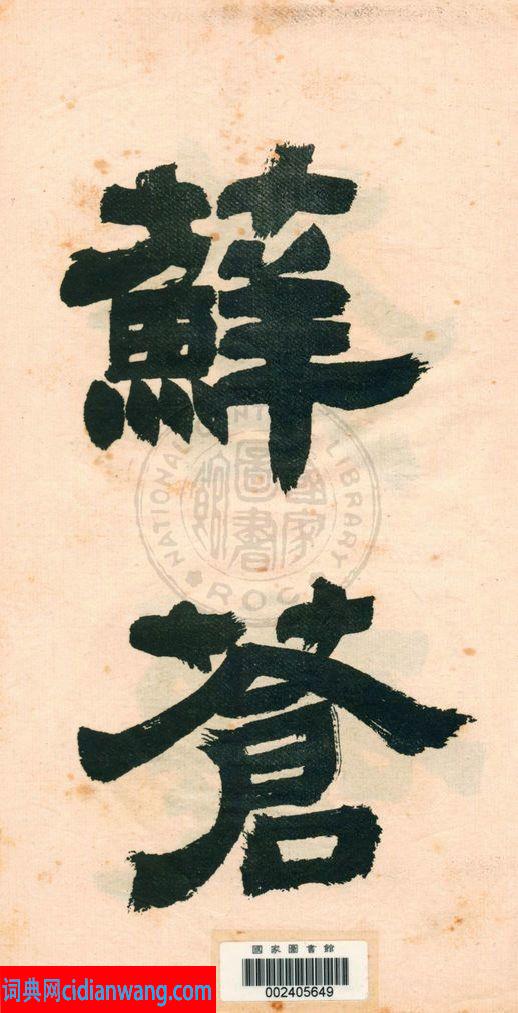 蘚
蒼
NATIONAL CENTRAL LIBRARY
國家圖書館
R.O.C.
國家圖書館
002405649
词典网cidianwang.com